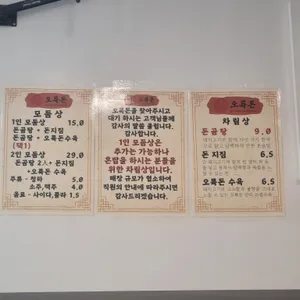 오륙돈
모둠상
1인 모둠상 15.0
돈곰탕 + 돈지짐
돈곰탕 + 오륙돈수육
(택1)
2인 모둠상 29.0
돈곰탕 2人 + 돈지짐
+오륙돈 수육
주류 - 청하 5.0
소주,맥주 4.0
음료 - 사이다,콜라 1.5
오륙돈
오륙돈을 찾아주시고
대기 하시는 고객님들께
감사의 말씀 올립니다.
감사합니다.
1인 모둠상은
추가는 가능하나
혼밥을 하시는 분들을
위한 차림상입니다.
매장 규모가 협소하여
직원의 안내에 따라주시면
감사드리겠습니다.
오륙돈
차림상
돈곰탕 9.0
돈지짐 6.5
오륙돈 수육 6.5